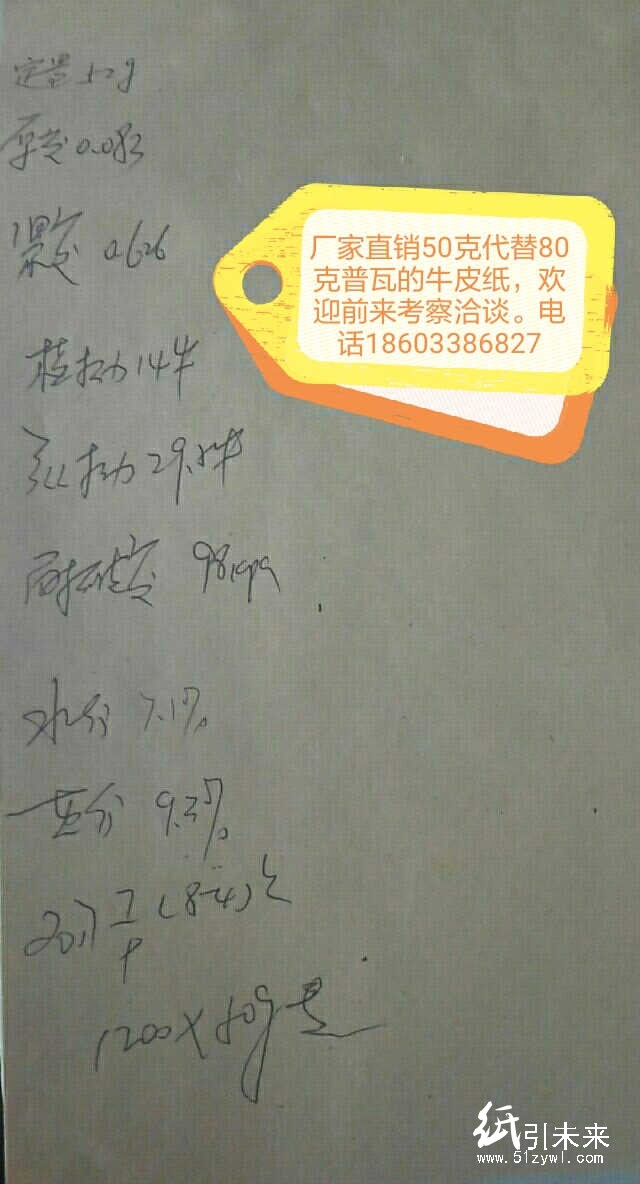 定量 52g
厚度 0.083
紧度 0.626
横拉力 14牛
纵拉力 29.5牛
耐破度 98kpa
水分 7.1%
灰分 9.3%
2017
(8-4)
1200X50g
厂家直销50克代替80
克普瓦的牛皮纸，欢
迎前来考察洽谈。电
话18603386827
纸引未来
www.51zywl.com